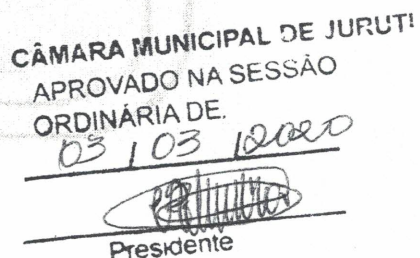 CÂMARA MUNICIPAL DE JURUTI
APROVADO NA SESSÃO
ORDINÁRIA DE.
03 / 03 / 2020
Presidente